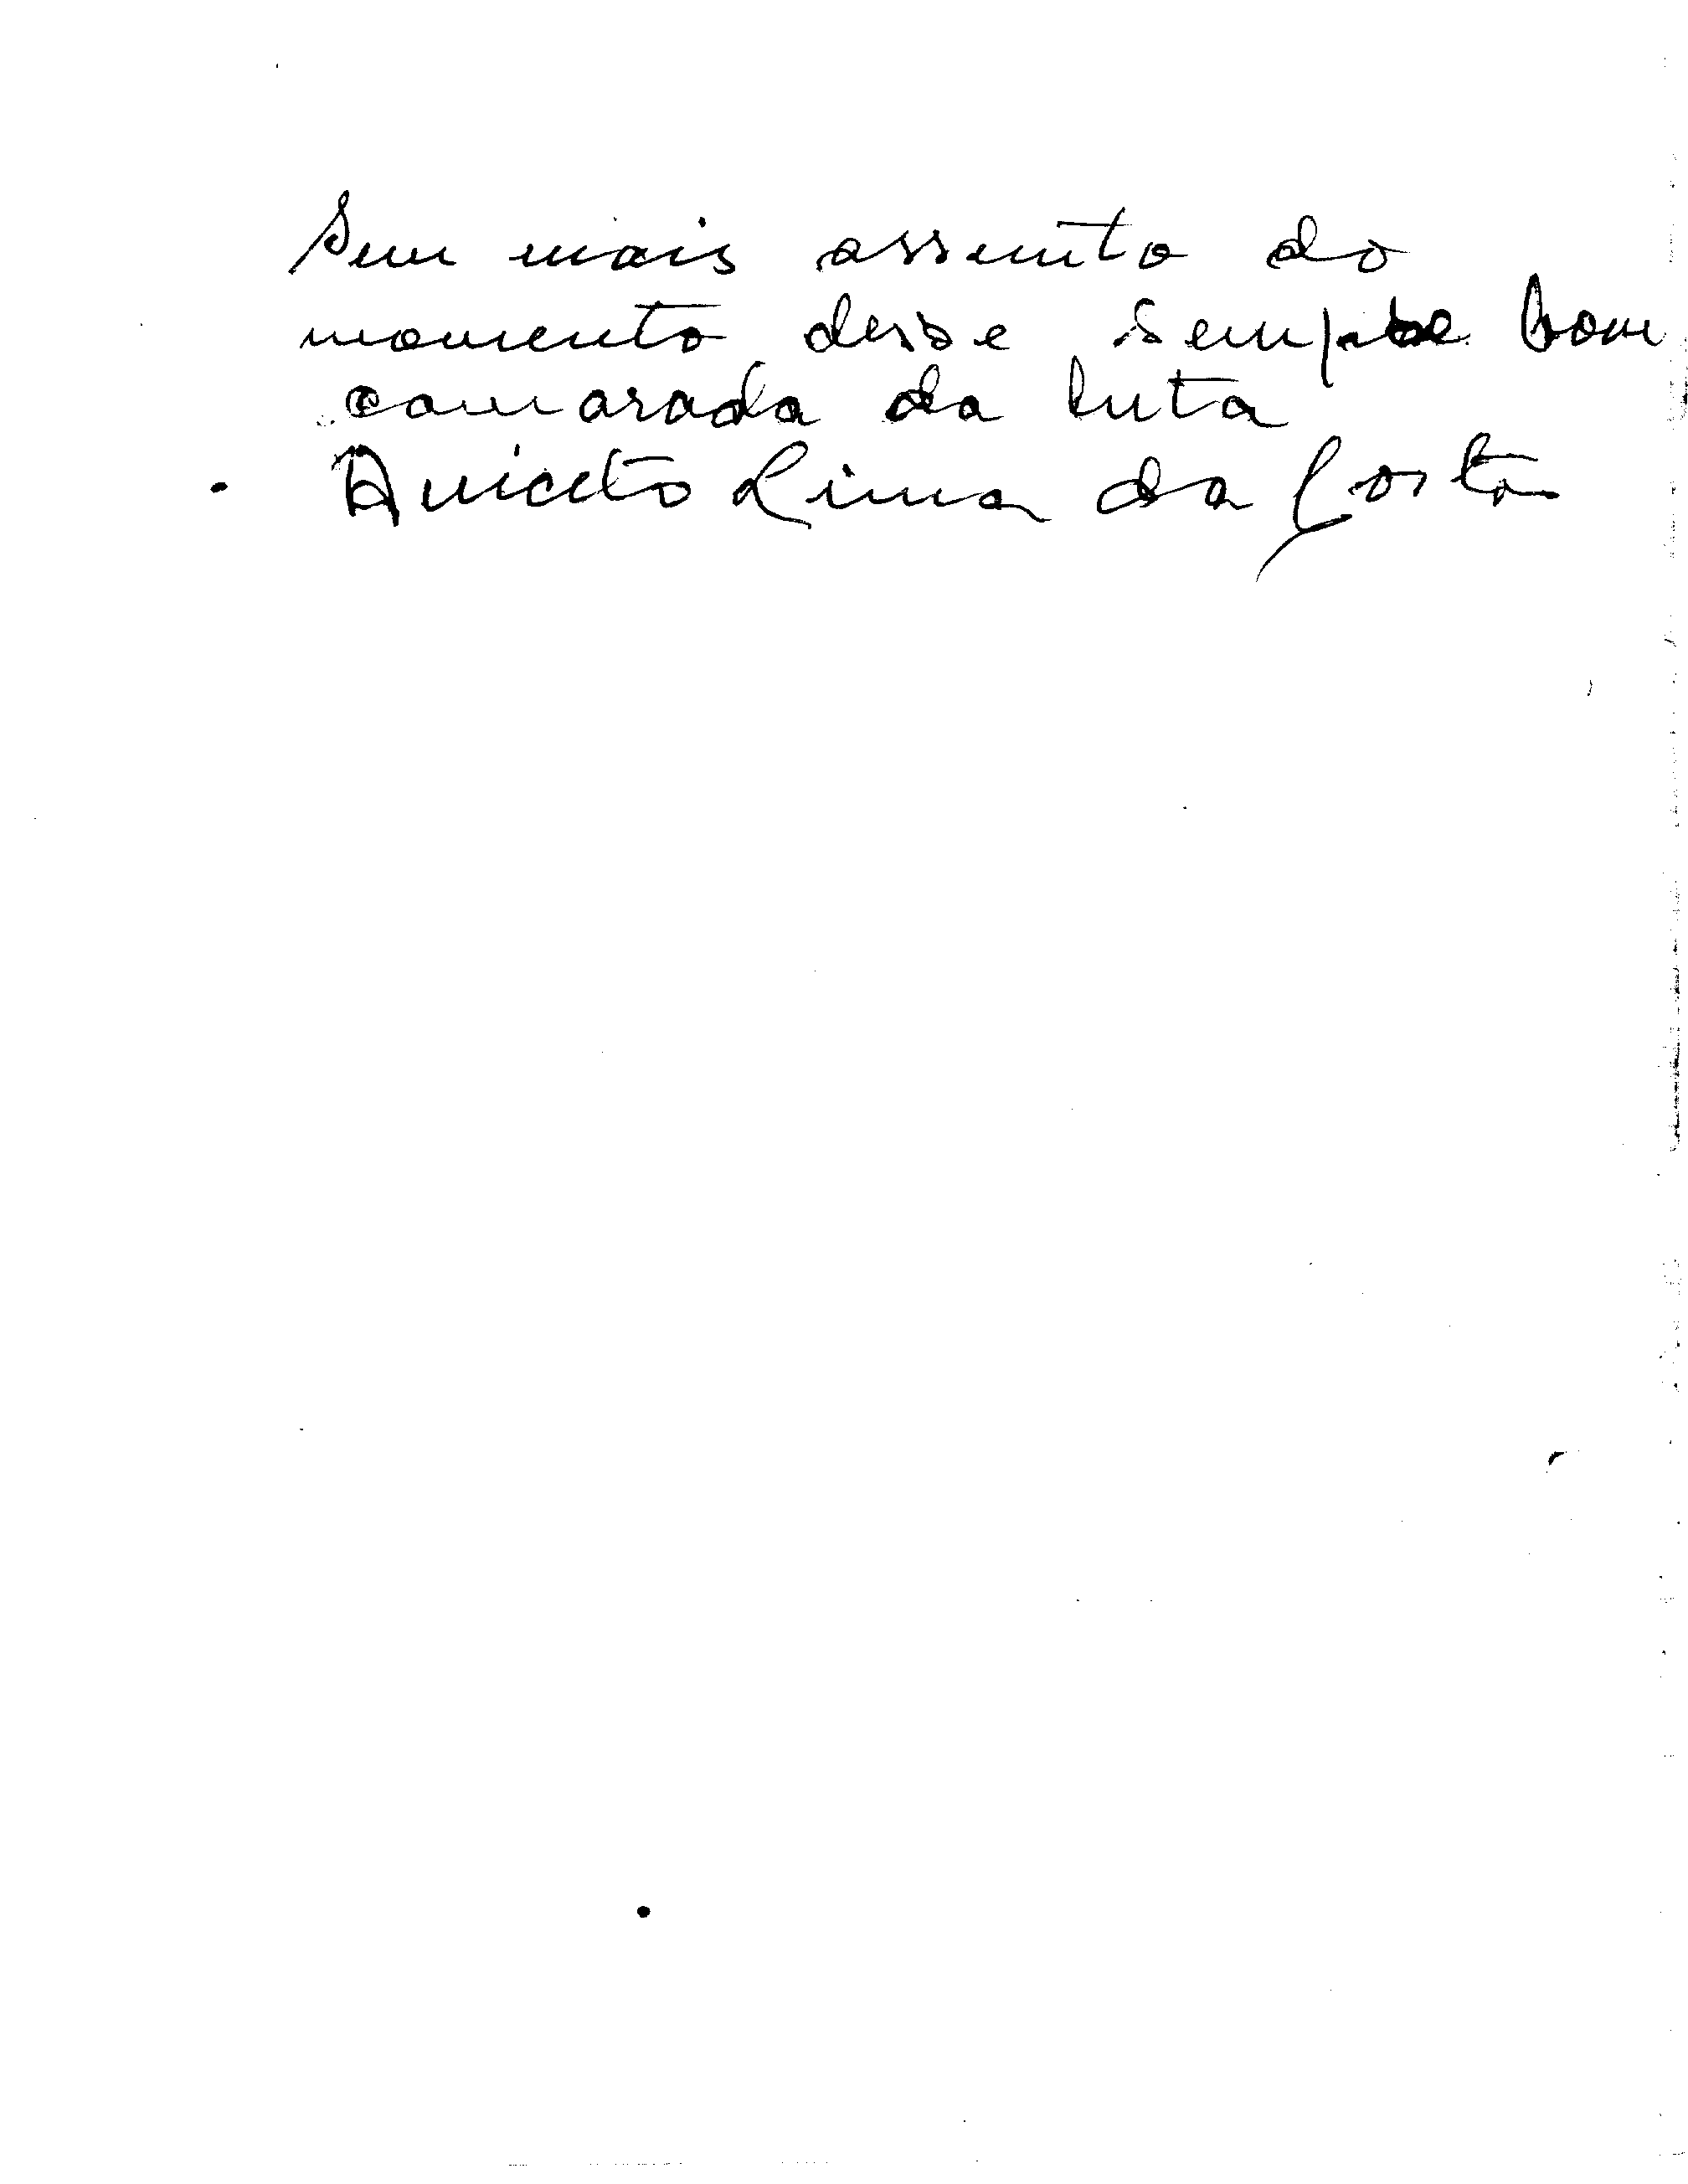 Sem mais assunto do
momento desse sempre bom
camarada da luta
Aniceto Lima da Costa